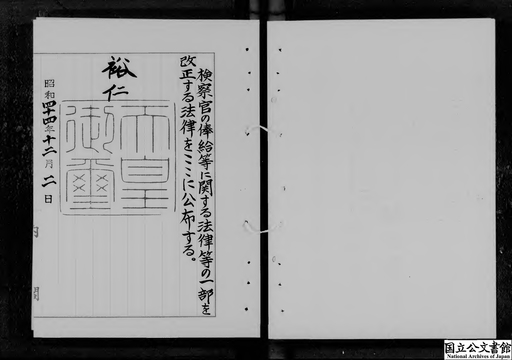 検察官の俸給等に関する法律等の一部を
改正する法律をここに公布する。
裕仁
天皇
御璽
昭和四十四年十二月二日
国立公文書館
National Archives of Japan